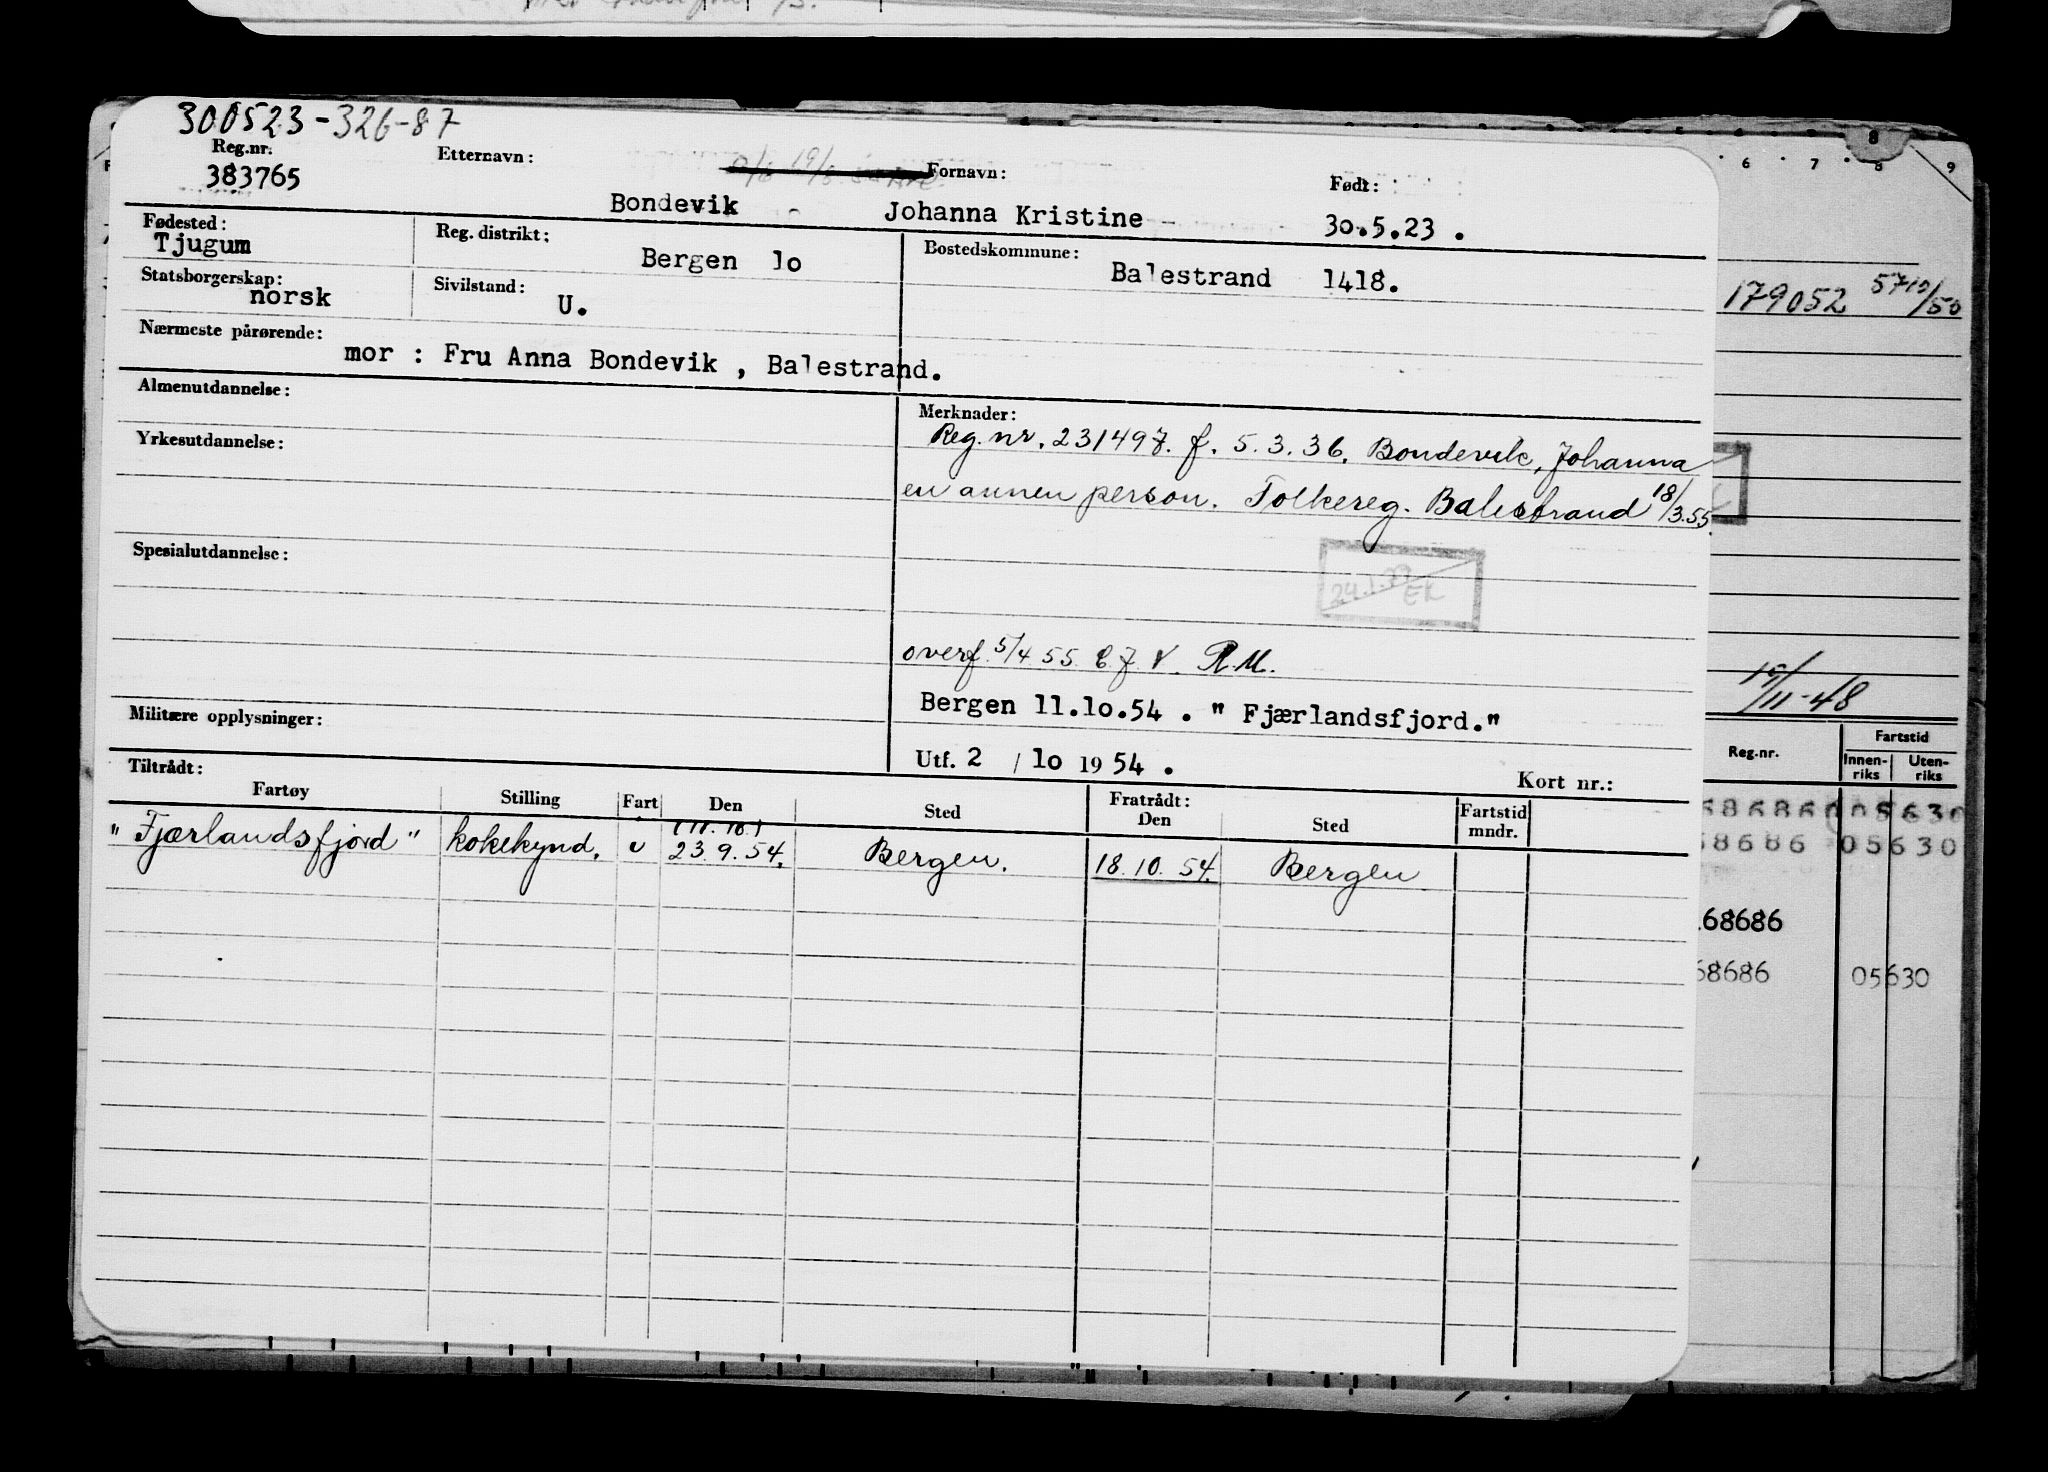 300523-326-87
Reg.nr. Etternavn: Fornavn: Født:
383765 Bondevik Johanna Kristine 30.5.23.
Fødested: Reg. distrikt: Bostedskommune:
Tjugum Bergen lo Balestrand 1418.
Statsborgerskap: Sivilstand:
norsk U.
Nærmeste pårørende:
mor : Fru Anna Bondevik , Balestrand.
Almenutdannelse:
Merknader:
Reg. nr. 231497. f. 5.3.36. Bondevik, Johanna
Yrkesutdannelse:
en annen person. Folkereg. Balestrand 18/3.55.
Spesialutdannelse:
overf. 5/4 55. R.M.
Bergen 11.lo.54 . " Fjærlandsfjord."
Militære opplysninger:
Utf. 2 / lo 19 54 . Kort nr.:
Tiltrådt: Fratrådt:
Fartøy Stilling Fart Den Sted Den Sted Fartstid mndr.
(11.10.)
" Fjærlandsfjord " kokekynd. u 23.9.54. Bergen. 18.10.54. Bergen
6 7 8 9
8
179052 5710/50
10/11-48
Reg.nr. Fartstid
Innen- Uten-
riks riks
686860 05630
68686 05630
68686
68686 05630